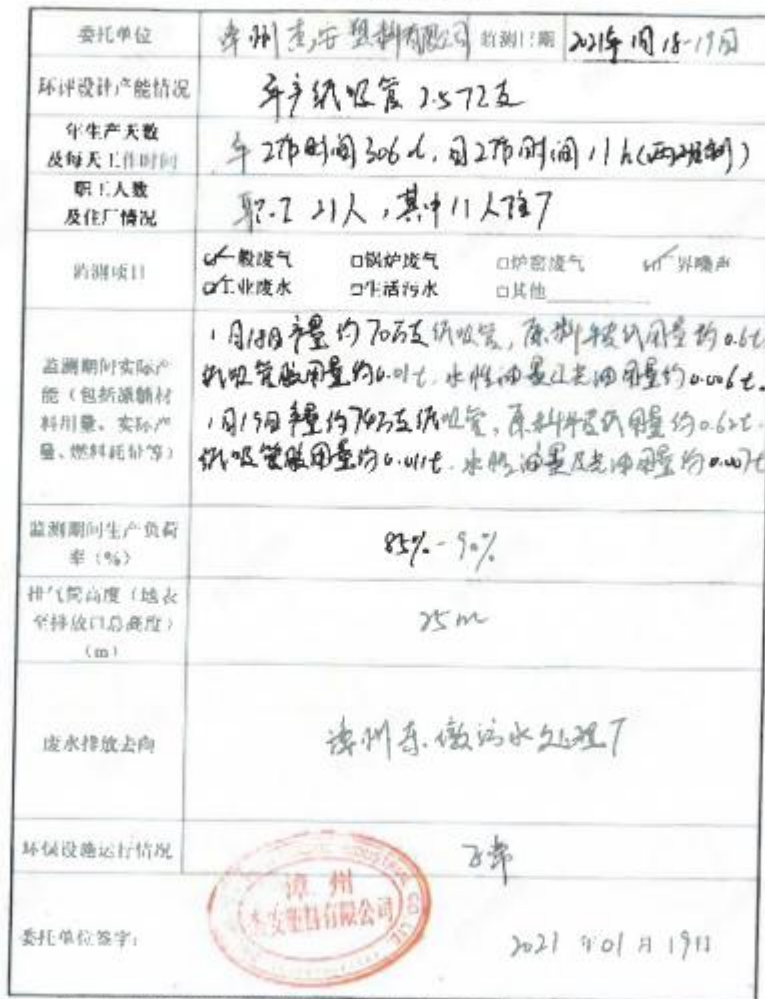 委托单位 漳州杰安塑料有限公司 监测日期 2021年1月18-19日
环评设计产能情况 年产纸吸管2.5亿支
年生产天数
及每天工作时间 年工作时间306d,日工作时间11h(两班制)
职工人数
及住厂情况 职工21人,其中11人住厂
监测项目 ☑一般废气 □锅炉废气 □炉窑废气 ☑厂界噪声
☑工业废水 □生活污水 □其他
监测期间实际产
能(包括原辅材
料用量、实际产
量、燃料耗量等)
1月18日产量约70万支纸吸管,原料牛皮纸用量约0.6t
纸吸管胶用量约0.01t.水性油墨及光油用量约0.006t。
1月19日产量约74万支纸吸管,原料牛皮纸用量约0.62t.
纸吸管胶用量约0.011t.水性油墨及光油用量约0.007t
监测期间生产负荷
率(%) 85%-90%
排气筒高度(地表
至排放口总高度)
(m) 25m
废水排放去向 漳州东墩污水处理厂
环保设施运行情况 正常
漳州
杰安塑料有限公司
委托单位签字: 2021年01月19日